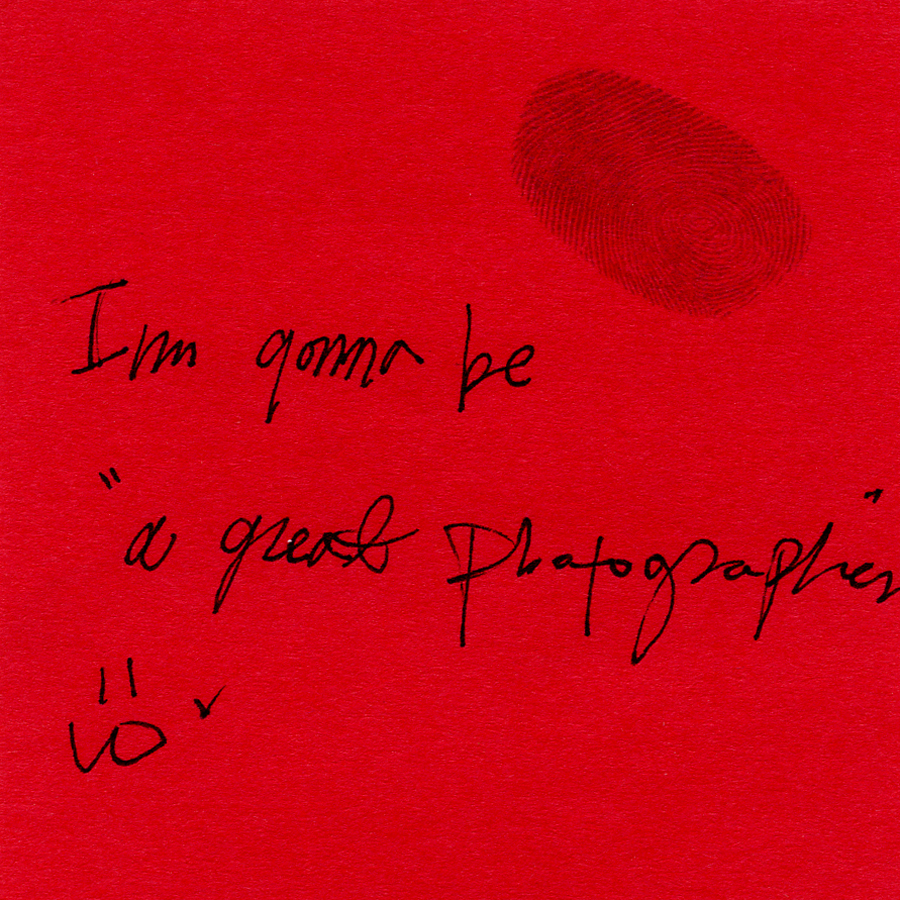 I'm gonna be
"a great photographer"